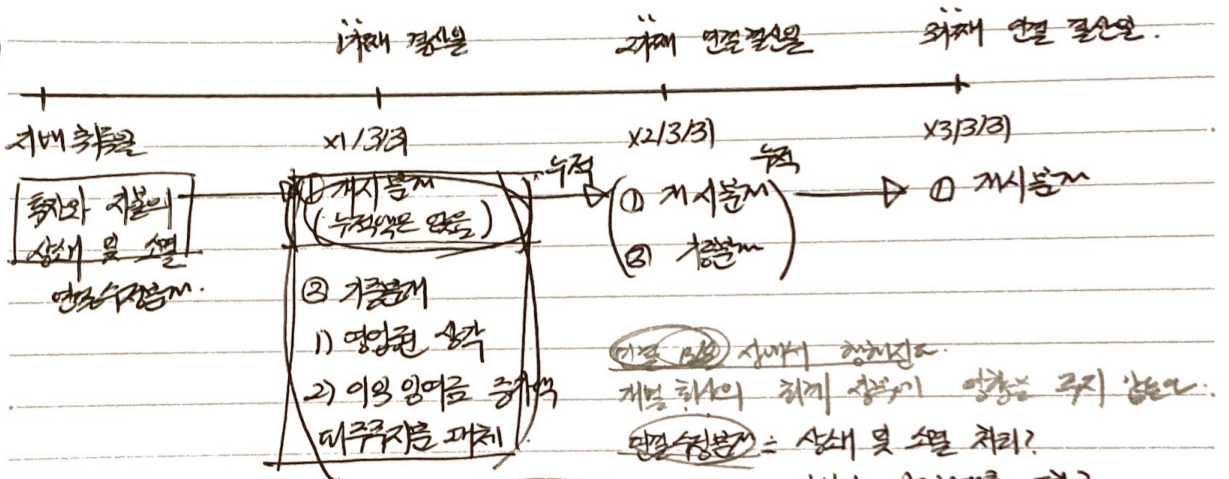 1년째 결산일
2년째 연결결산일
3년째 연결 결산일.
지배 취득일
x1/3/31
x2/3/31
x3/3/31
투자와 자본의
상쇄 및 소멸
연결수정분개.
① 개시분개
(누적액은 없음)
② 기중분개
1) 영업권 상각
2) 이익 잉여금 증가액
비주주지분 대체
누적
① 개시분개
② 기중분개
누적
① 개시분개
연결 B/S 상에서 행해진다.
개별 회사의 회계 장부에 영향을 주지 않는다.
연결수정분개 = 상쇄 및 소멸 처리?